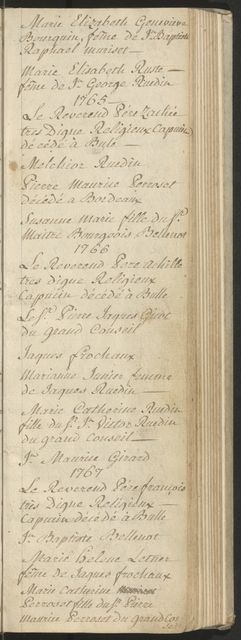 Marie Elizabeth Genevieve
Bourguin, feme de Jn Baptiste
Raphael
Marie Elisabeth Ruste —
feme de Jn George Ruedin
1765
Le Reverend Pére Zachée
tres Digne Religieux Capucin
décédé à Bule —
Melchior Ruedin
Pierre Maurice Perroset
Décédé a Bordeaux
Susanne Marie fille du Sr
Maitre Bourgeois Bellenot
1766
Le Reverend Pere achille
tres digne Religieux
Capucin décédé à Bulle
Le Sr Pierre Jaques
du grand Conseil
Jaques frochaux
Marianne Junier femme
de Jaques Ruedin —
Marie Catherine Ruedin
fille du Sr Jn Victor Ruedin
du grand conseil —
Jn Maurice Girard
1767
Le Reverend Pere françois
tres Digne Religieux —
Capucin décédé à Bulle
Jn Baptiste Bellenot
Marie helene
feme de Jaques frochaux
Marie Catherine
Perroset fille du Sr Pierre
Maurice Perroset du grand Con